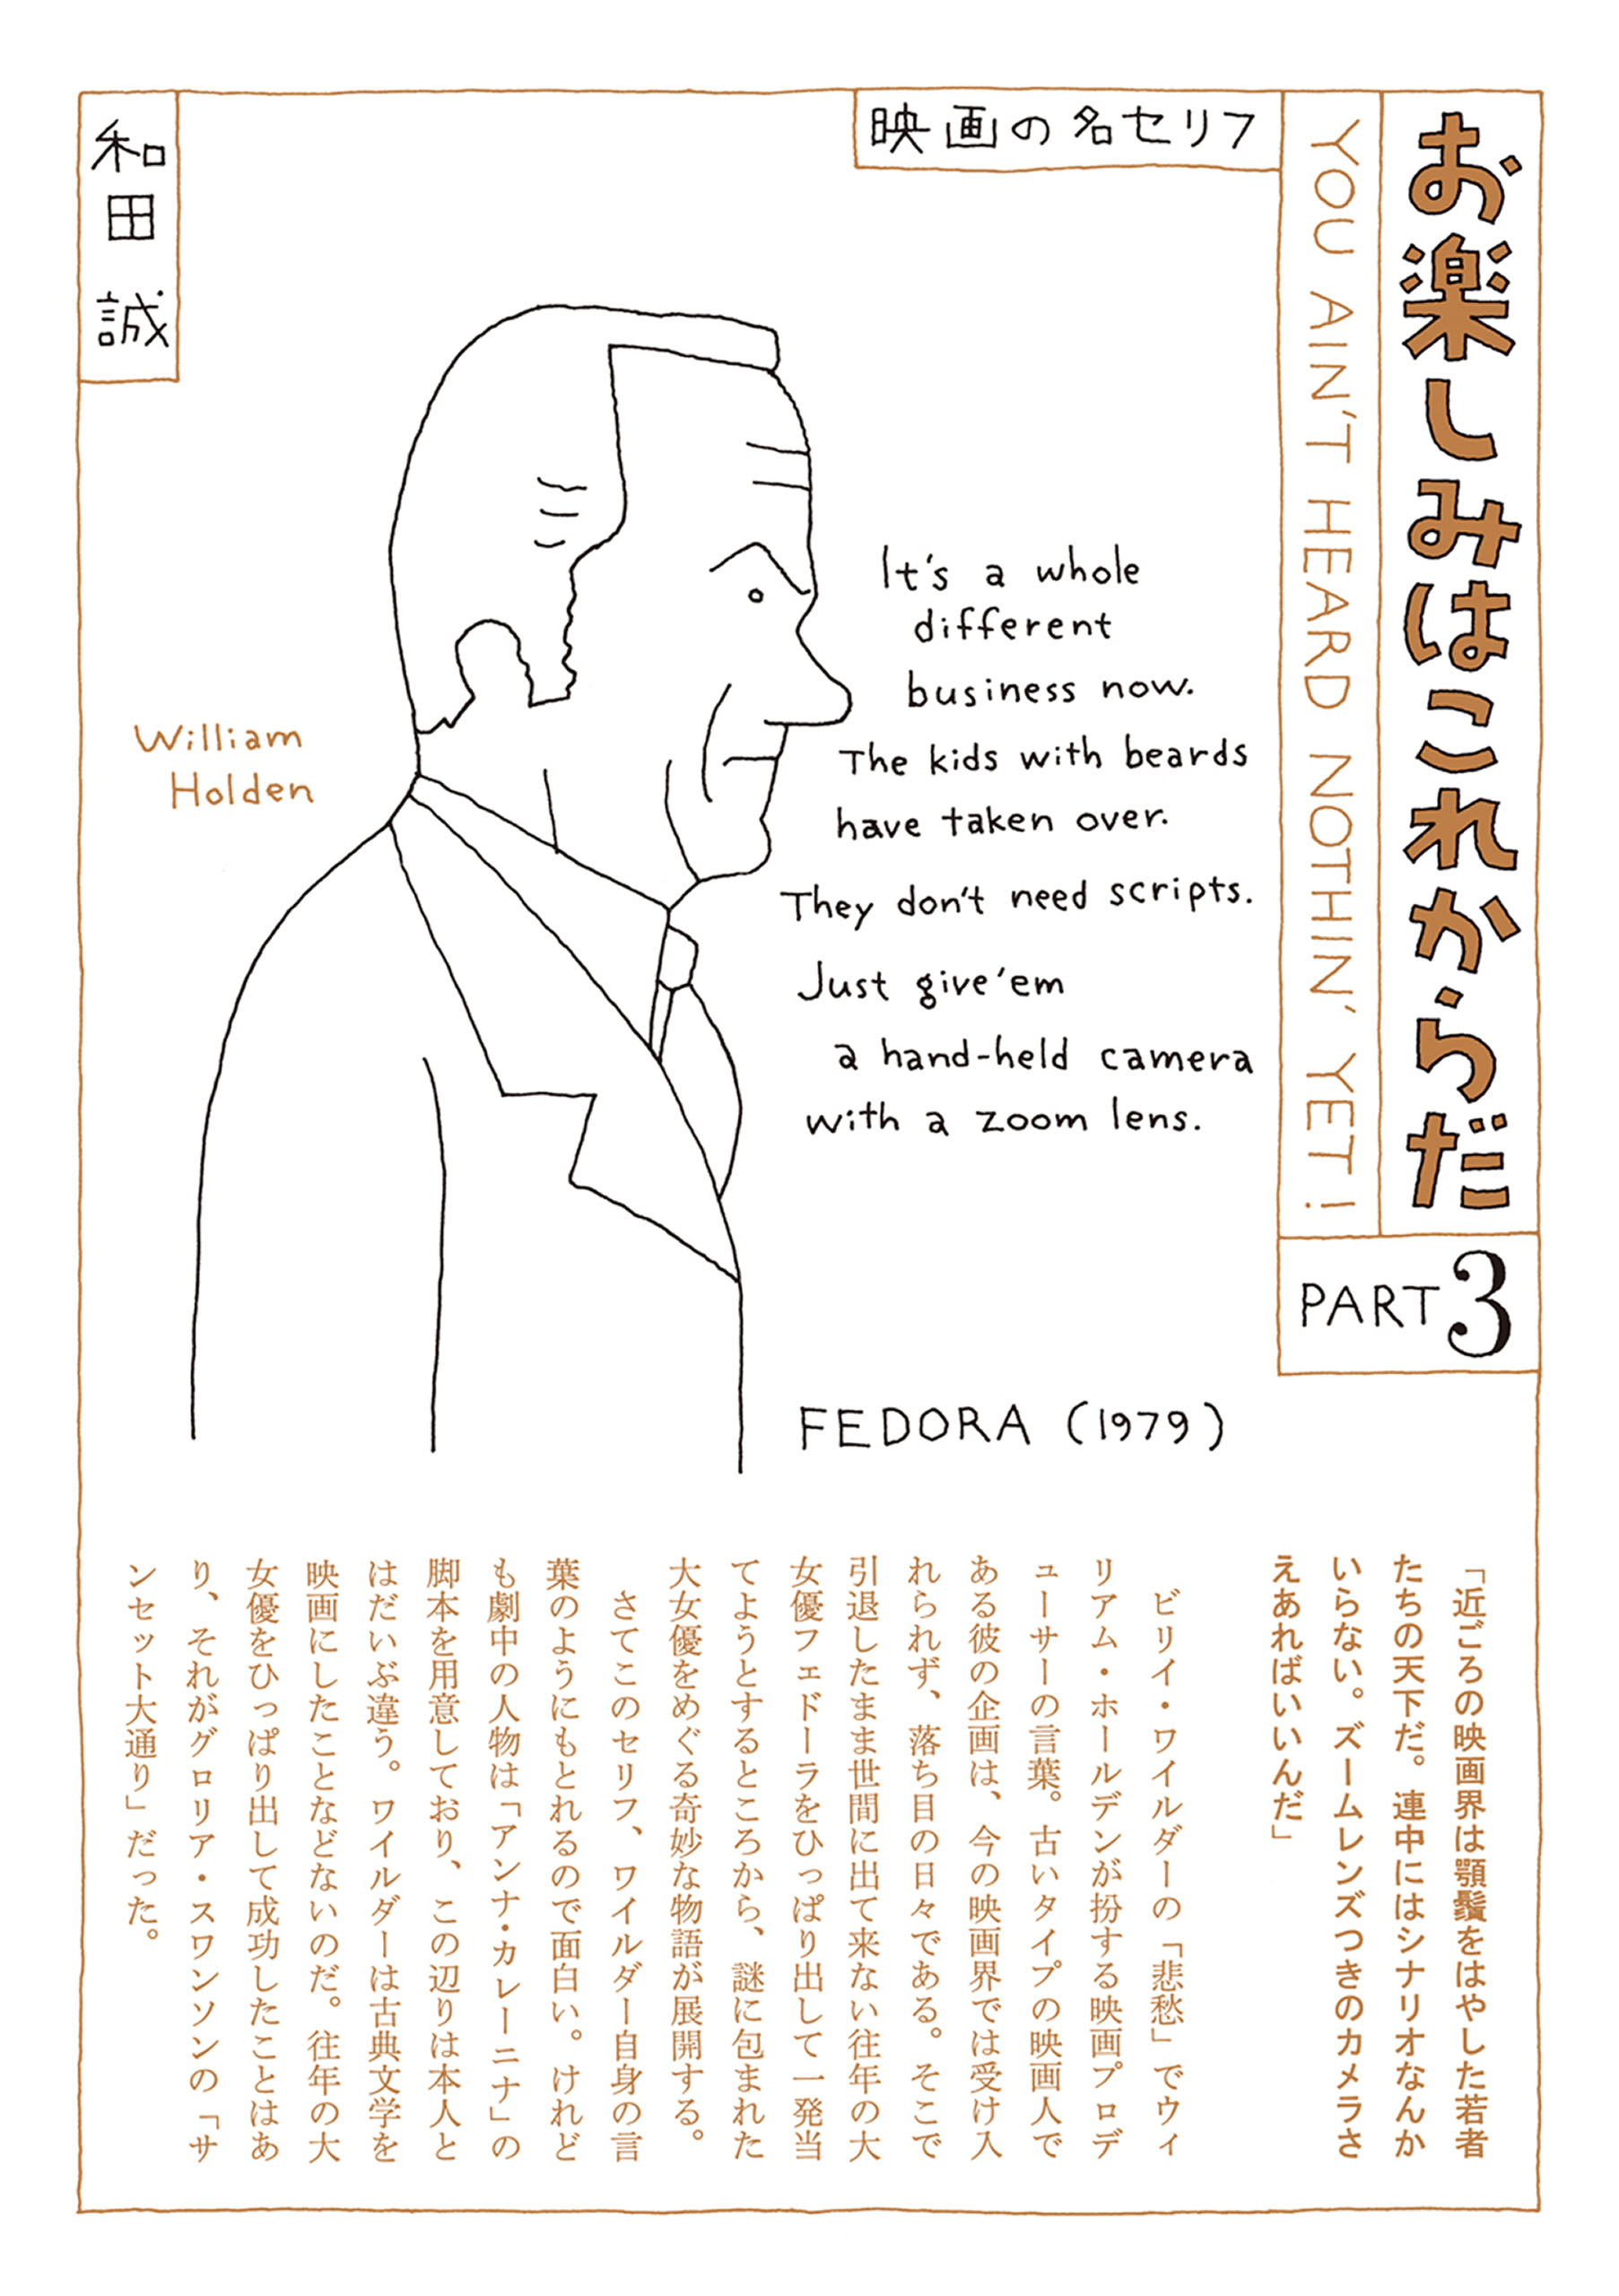 お楽しみはこれからだ
YOU AIN'T HEARD NOTHIN' YET!
PART 3
映画の名セリフ
和田誠
William
Holden
It's a whole
different
business now.
The kids with beards
have taken over.
They don't need scripts.
Just give 'em
a hand-held camera
with a zoom lens.
FEDORA (1979)
「近ごろの映画界は顎鬚をはやした若者
たちの天下だ。連中にはシナリオなんか
いらない。ズームレンズつきのカメラさ
えあればいいんだ」
ビリイ・ワイルダーの「悲愁」でウィ
リアム・ホールデンが扮する映画プロデ
ューサーの言葉。古いタイプの映画人で
ある彼の企画は、今の映画界では受け入
れられず、落ち目の日々である。そこで
引退したまま世間に出て来ない往年の大
女優フェドーラをひっぱり出して一発当
てようとするところから、謎に包まれた
大女優をめぐる奇妙な物語が展開する。
さてこのセリフ、ワイルダー自身の言
葉のようにもとれるので面白い。けれど
も劇中の人物は「アンナ・カレーニナ」の
脚本を用意しており、この辺りは本人と
はだいぶ違う。ワイルダーは古典文学を
映画にしたことなどないのだ。往年の大
女優をひっぱり出して成功したことはあ
り、それがグロリア・スワンソンの「サ
ンセット大通り」だった。